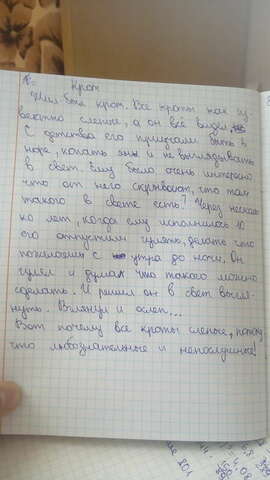 Крот
Жил был крот. Все кроты как из
вестно слепые, а он всё видел.
С детства его приучали быть в
норе, копать и не выглядывать
в свет. Ему было очень интересно
что от него скрывают, что там
такого в свете есть? Через несколь
ко лет, когда ему исполнилось 10
его отпустили гулять, делать что
пожелаешь с утра до ночи. Он
гулял и думал что такого можно
сделать. И решил он в свет выгля-
нуть. Взглянул и ослеп...
Вот почему все кроты слепые, потому
что любознательные и непослушные!